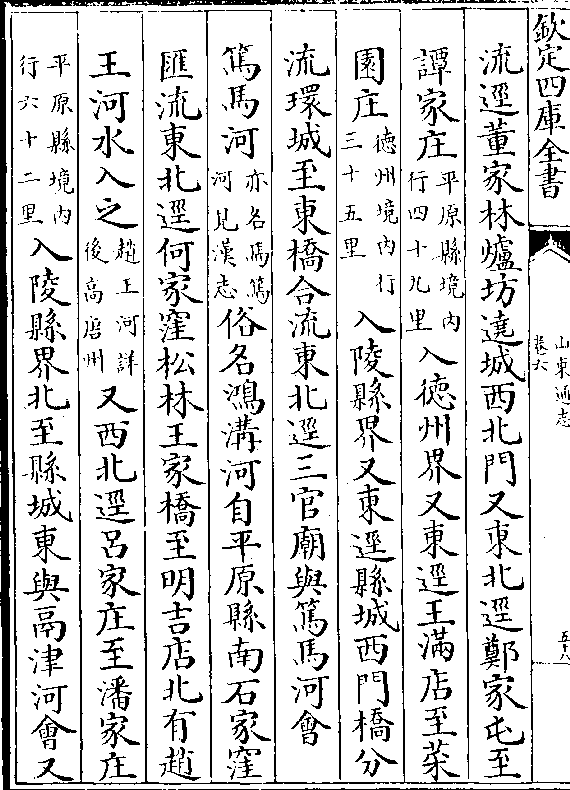 欽定四庫全書
山東通志
卷六
五十八
流逕董家林爐坊遶城西北門又東北逕鄭家屯至
譚家庄平原縣境內行四十九里入德州界又東逕王滿店至菜
園庄德州境內行三十五里入陵縣界又東逕縣城西門橋分
流環城至東橋合流東北逕三官廟與篤馬河會
篤馬河亦名馬篤河見漢志俗名鴻溝河自平原縣南石家窪
匯流東北逕何家窪松林王家橋至明吉店北有趙
王河水入之趙王河詳後高唐州又西北逕呂家庄至潘家庄
平原縣境內行六十二里入陵縣界北至縣城東與鬲津河會又